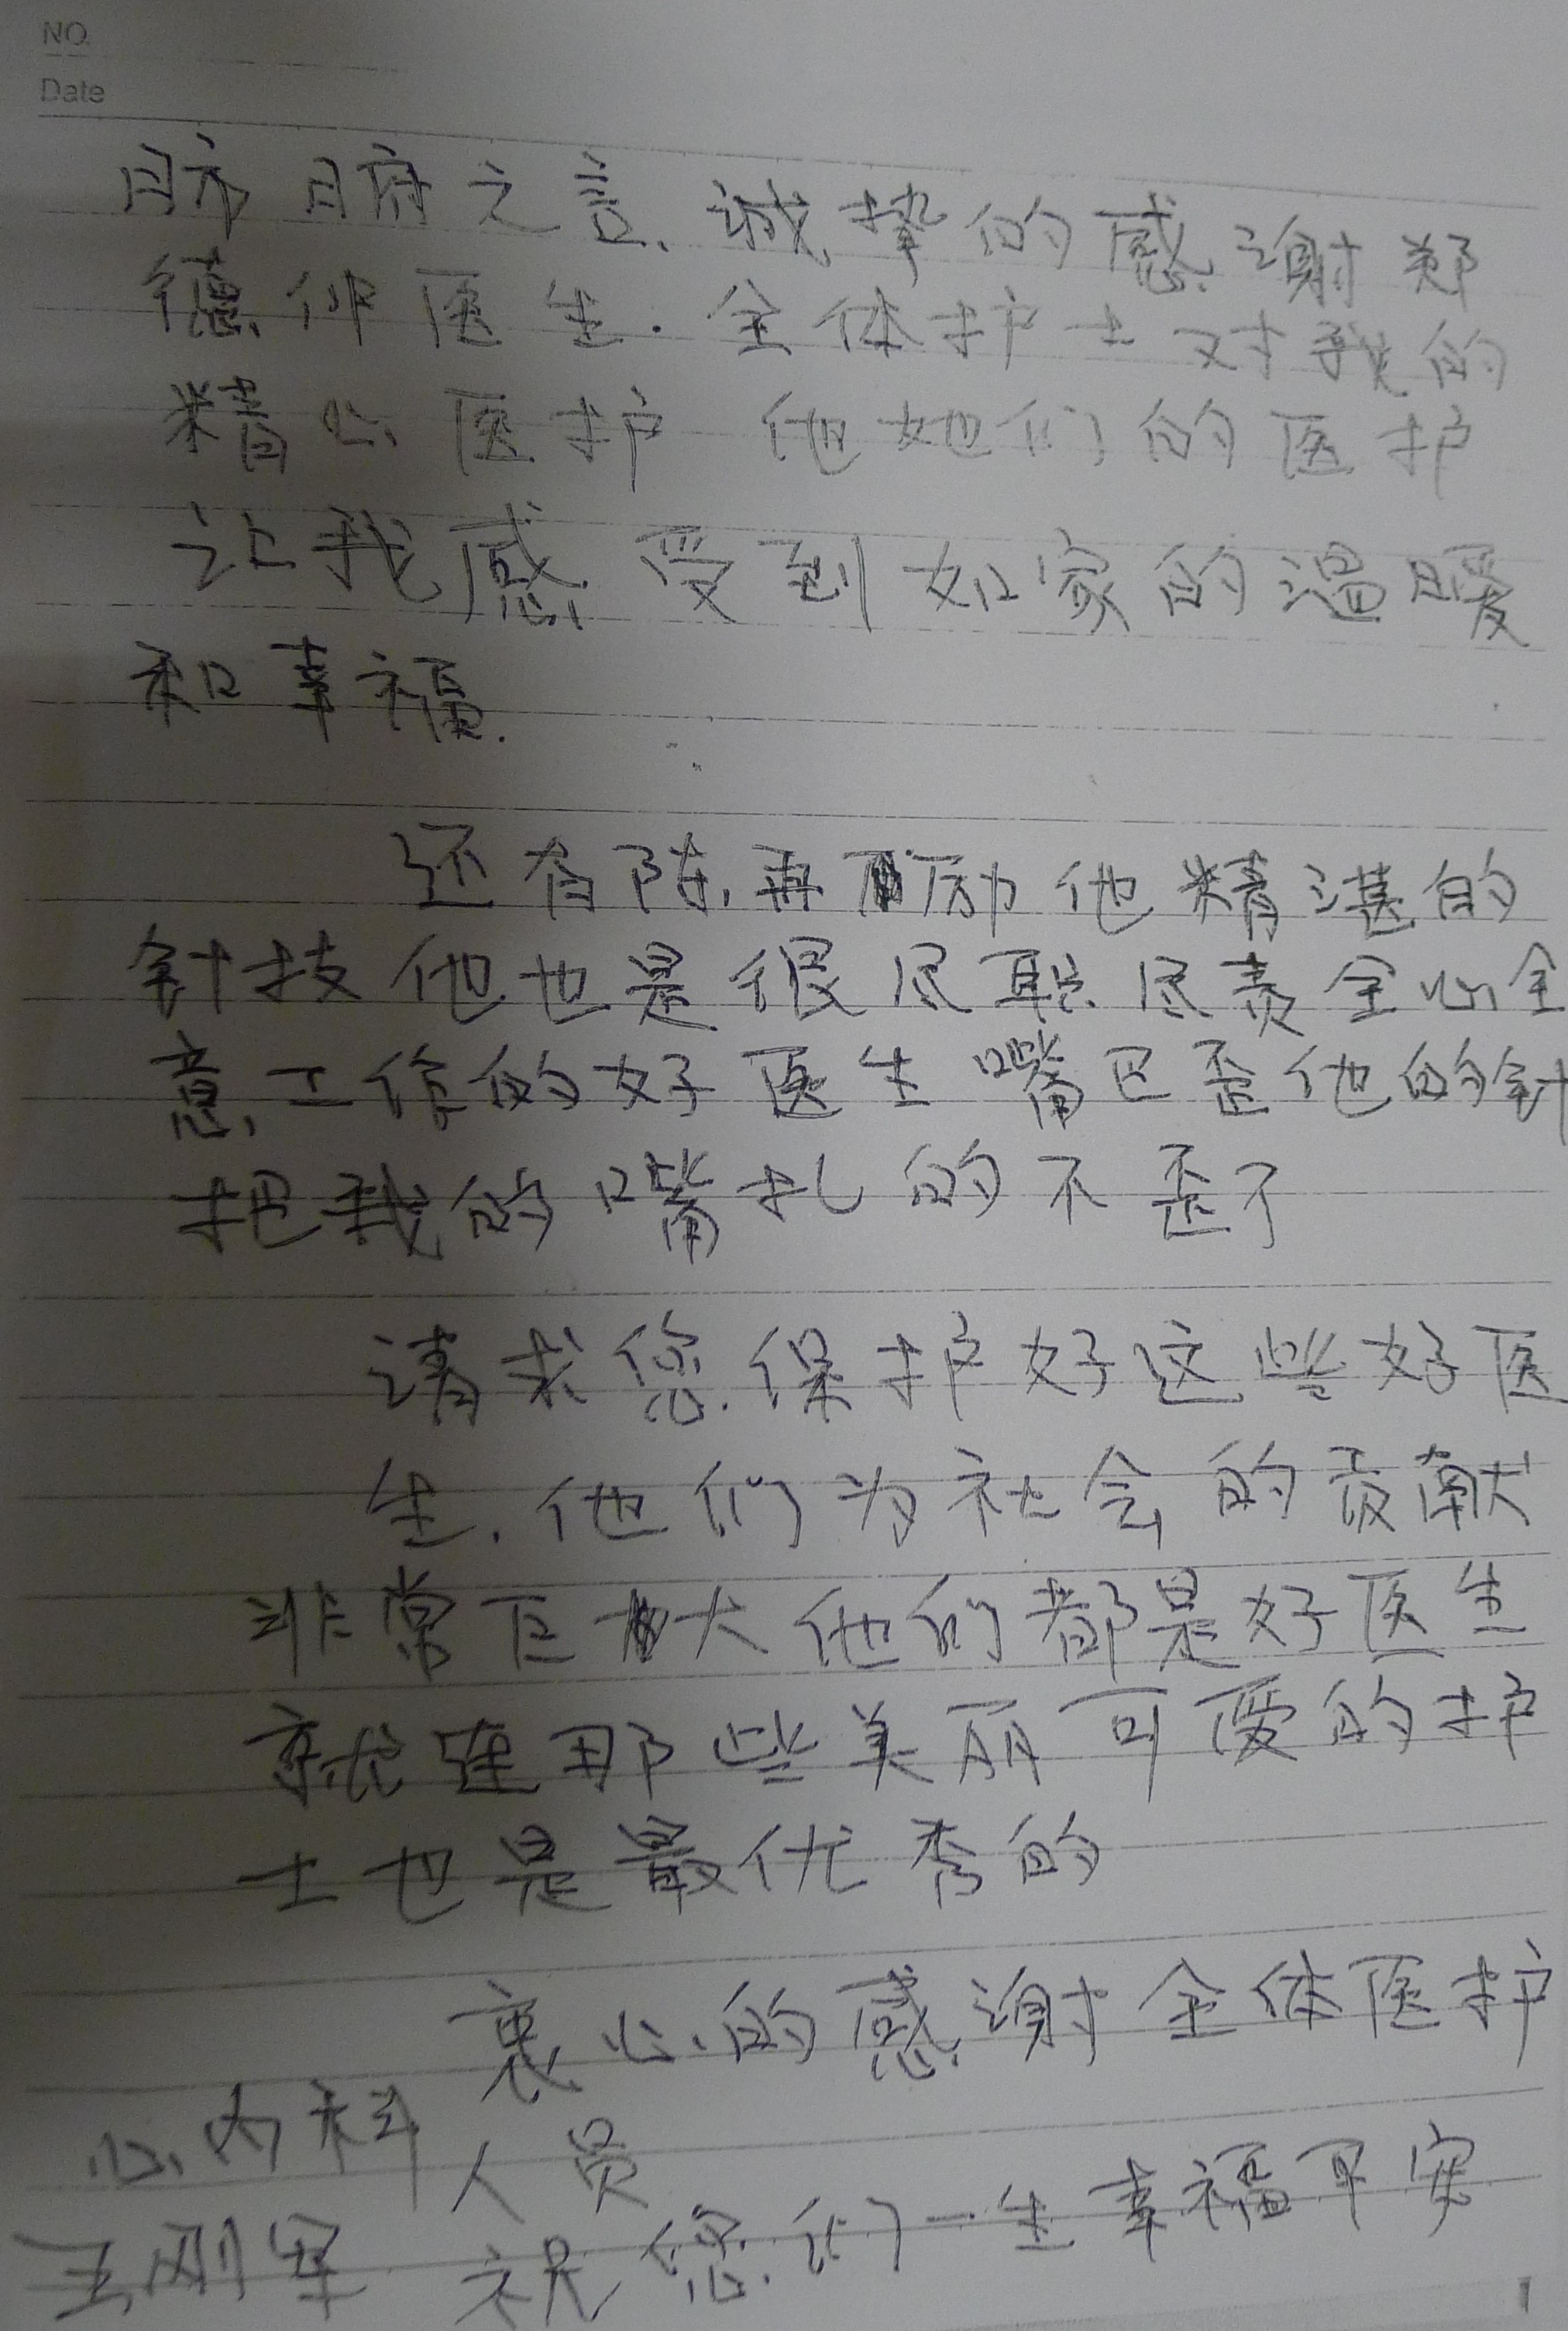 NO.
Date
肺腑之言、诚挚的感谢郑
德仲医生.全体护士对我的
精心医护 他她们的医护
让我感受到如家的温暖
和幸福.
还有陈再励他精湛的
针技他也是很尽职尽责全心全
意工作的好医生嘴巴歪他的针
把我的嘴扎的不歪了
请求您保护好这些好医
生.他们为社会的贡献
非常巨大他的都是好医生
就连那些美丽可爱的护
士也是最优秀的
衷心的感谢全体医护
人员
祝您们一生幸福平安
心内科
王刚军